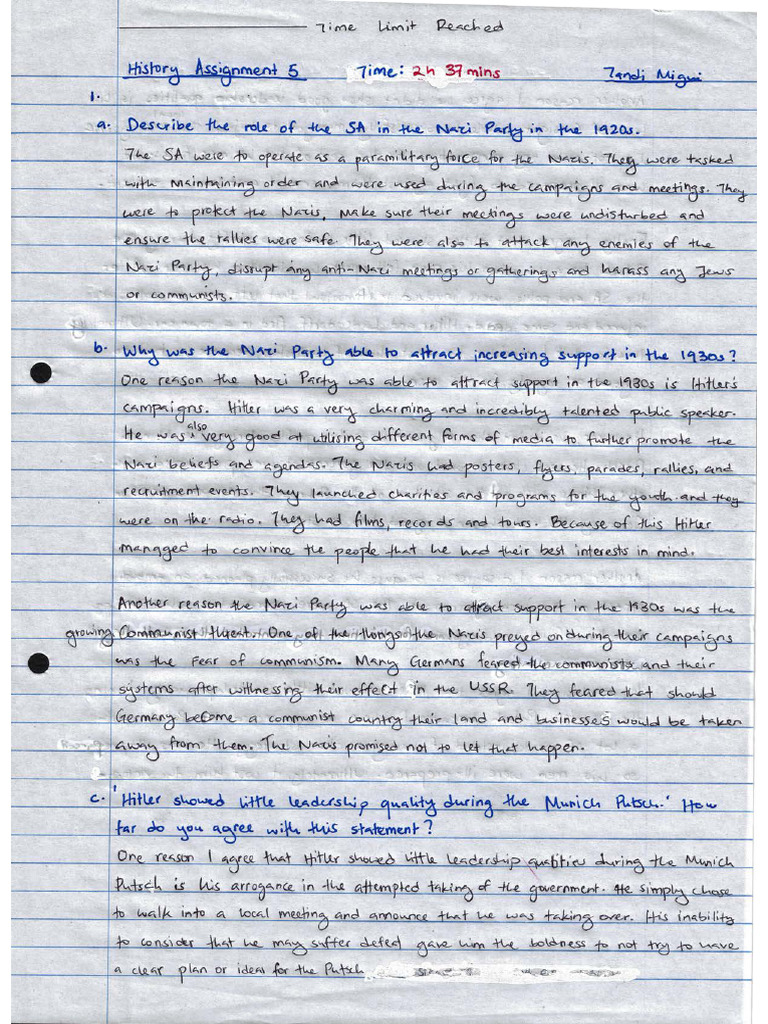 Time Limit Reached
History Assignment 5 Time: 2h 37mins Tandi Migwi
1.
a. Describe the role of the SA in the Nazi Party in the 1920s.
The SA were to operate as a paramilitary force for the Nazis. They were tasked
with maintaining order and were used during the campaigns and meetings. They
were to protect the Nazis, make sure their meetings were undisturbed and
ensure the rallies were safe. They were also to attack any enemies of the
Nazi Party, disrupt any anti-Nazi meetings or gatherings and harass any Jews
or communists.
b. Why was the Nazi Party able to attract increasing support in the 1930s?
One reason the Nazi Party was able to attract support in the 1930s is Hitler's
campaigns. Hitler was a very charming and incredibly talented public speaker.
He was also very good at utilising different forms of media to further promote the
Nazi beliefs and agendas. The Nazis had posters, flyers, parades, rallies, and
recruitment events. They launched charities and programs for the youth and they
were on the radio. They had films, records and tours. Because of this Hitler
managed to convince the people that he had their best interests in mind.
Another reason the Nazi Party was able to attract support in the 1930s was the
growing Communist threat. One of the things the Nazis preyed on during their campaigns
was the fear of communism. Many Germans feared the communists and their
systems after witnessing their effect in the USSR. They feared that should
Germany become a communist country their land and businesses would be taken
away from them. The Nazis promised not to let that happen.
c. 'Hitler showed little leadership quality during the Munich Putsch.' How
far do you agree with this statement?
One reason I agree that Hitler showed little leadership qualities during the Munich
Putsch is his arrogance in the attempted taking of the government. He simply chose
to walk into a local meeting and announce that he was taking over. His inability
to consider that he may suffer defeat gave him the boldness to not try to have
a clear plan or ideas for the Putsch